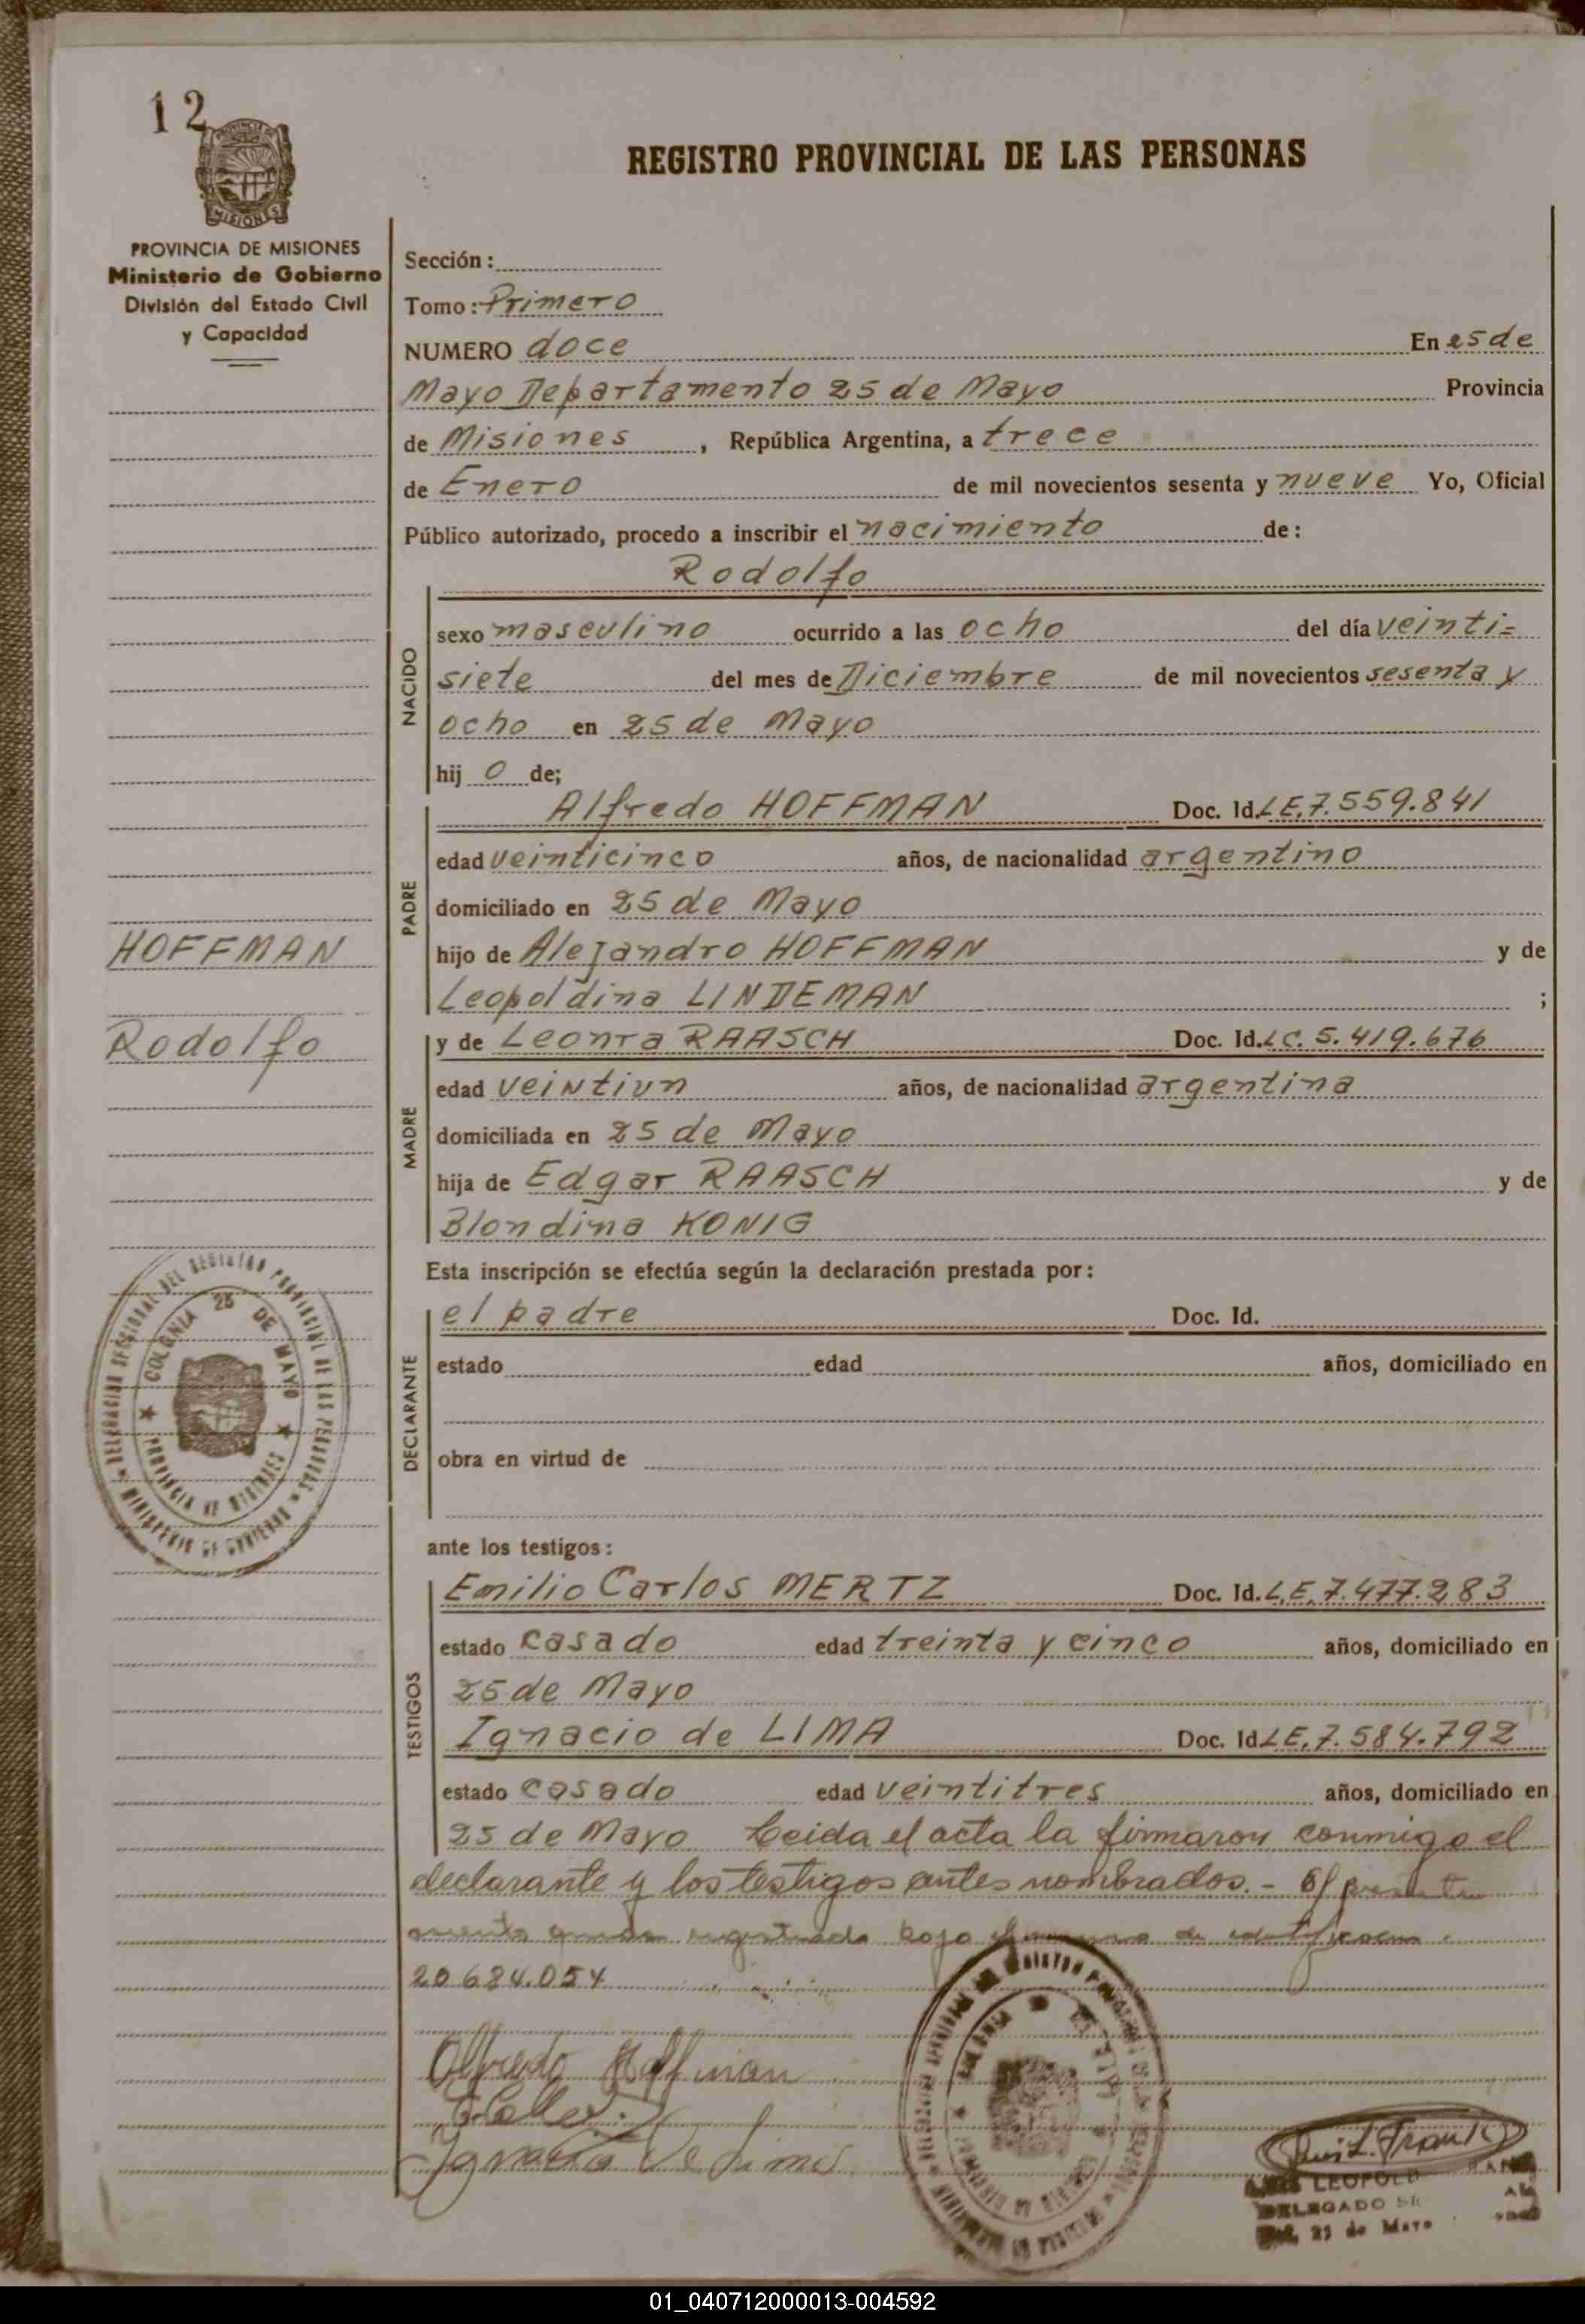 12
PROVINCIA DE
MISIONES
PROVINCIA DE MISIONES
Ministerio de Gobierno
División del Estado Civil
y Capacidad
REGISTRO PROVINCIAL DE LAS PERSONAS
Sección:
Tomo: Primero
NUMERO doce En 25 de
Mayo Departamento 25 de Mayo Provincia
de Misiones, República Argentina, a trece
de Enero de mil novecientos sesenta y nueve Yo, Oficial
Público autorizado, procedo a inscribir el nacimiento de:
Rodolfo
NACIDO
sexo masculino ocurrido a las ocho del día veinti=
siete del mes de Diciembre de mil novecientos sesenta y
ocho en 25 de Mayo
hij o de;
PADRE
Alfredo HOFFMAN Doc. Id. LE.7.559.841
edad veinticinco años, de nacionalidad argentino
domiciliado en 25 de Mayo
hijo de Alejandro HOFFMAN y de
Leopoldina LINDEMAN ;
HOFFMAN
Rodolfo
MADRE
y de Leonra RAASCH Doc. Id. LC. 5.419.676
edad veintiun años, de nacionalidad argentina
domiciliada en 25 de Mayo
hija de Edgar RAASCH y de
Blondina KONIG
Esta inscripción se efectúa según la declaración prestada por:
DECLARANTE
el padre Doc. Id.
estado edad años, domiciliado en
obra en virtud de
DELEGACION SECCIONAL DEL REGISTRO PROVINCIAL DE LAS PERSONAS
MINISTERIO DE GOBIERNO
COLONIA 25 DE MAYO
PROVINCIA DE MISIONES
ante los testigos:
TESTIGOS
Emilio Carlos MERTZ Doc. Id. L.E.7.477.283
estado casado edad treinta y cinco años, domiciliado en
25 de Mayo
Ignacio de LIMA Doc. Id. LE.7.584.792
estado casado edad veintitres años, domiciliado en
25 de Mayo Leida el acta la firmaron conmigo el
declarante y los testigos antes nombrados.- El presente
registrada bajo el numero de
20684.054
Alfredo Hoffman
Ignacio De Lima
Luis L. Frank
LEOPOLD
DELEGADO
25 de Mayo
01_040712000013-004592